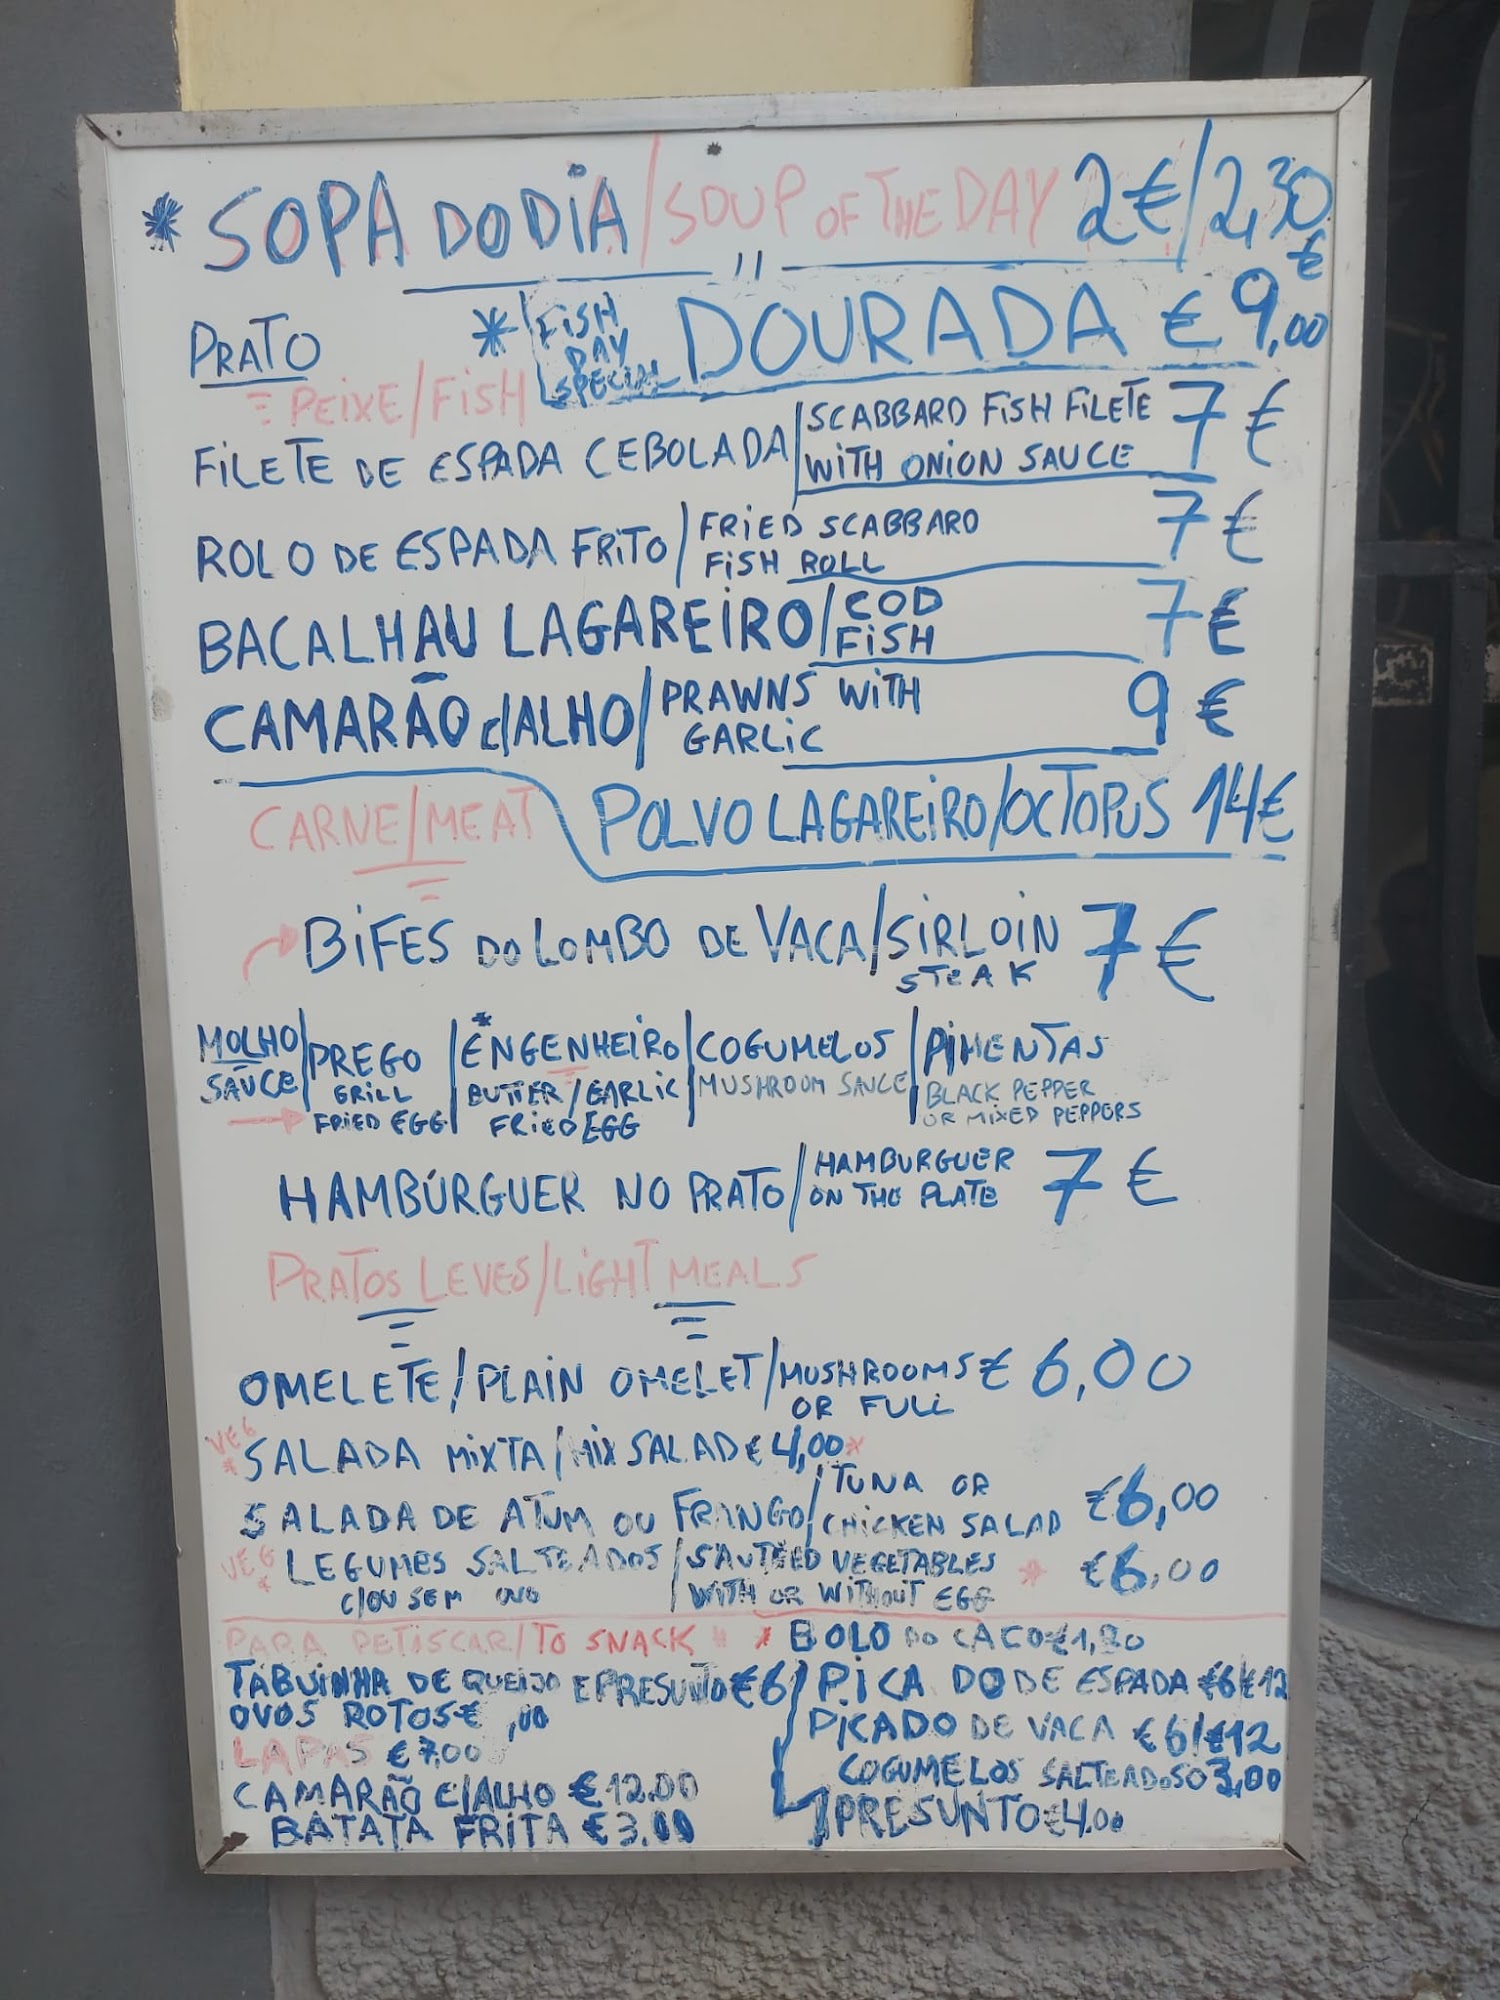 * SOPA DO DIA / SOUP OF THE DAY 2€ / 2,30 €
PRATO
* FISH DAY SPECIAL DOURADA € 9,00
PEIXE/FISH
FILETE DE ESPADA CEBOLADA / SCABBARD FISH FILETE WITH ONION SAUCE 7€
ROLO DE ESPADA FRITO / FRIED SCABBARD FISH ROLL 7€
BACALHAU LAGAREIRO / COD FISH 7€
CAMARÃO c/ALHO / PRAWNS WITH GARLIC 9€
CARNE/MEAT
POLVO LAGAREIRO/OCTOPUS 14€
BIFES DO LOMBO DE VACA/SIRLOIN STEAK 7€
MOLHO SAUCE / PREGO GRILL FRIED EGG | * ENGENHEIRO BUTTER/GARLIC FRIED EGG | COGUMELOS MUSHROOM SAUCE | PIMENTAS BLACK PEPPER OR MIXED PEPPERS
HAMBÚRGUER NO PRATO / HAMBURGUER ON THE PLATE 7€
PRATOS LEVES/LIGHT MEALS
OMELETE / PLAIN OMELET / MUSHROOMS OR FULL € 6,00
VEG * SALADA MIXTA / MIX SALAD € 4,00 *
SALADA DE ATUM OU FRANGO / TUNA OR CHICKEN SALAD €6,00
VEG * LEGUMES SALTEADOS C/OU SEM OVO / SAUTEED VEGETABLES WITH OR WITHOUT EGG * €6,00
PARA PETISCAR/TO SNACK
* BOLO DO CACO
TABUINHA DE QUEIJO E PRESUNTO €6
OVOS ROTOS € ,00
LAPAS €7,00
CAMARÃO C/ALHO €12.00
BATATA FRITA €3.00
PICADO DE ESPADA €6/€12
PICADO DE VACA €6/€12
COGUMELOS SALTEADOS 3,00
PRESUNTO €4.00